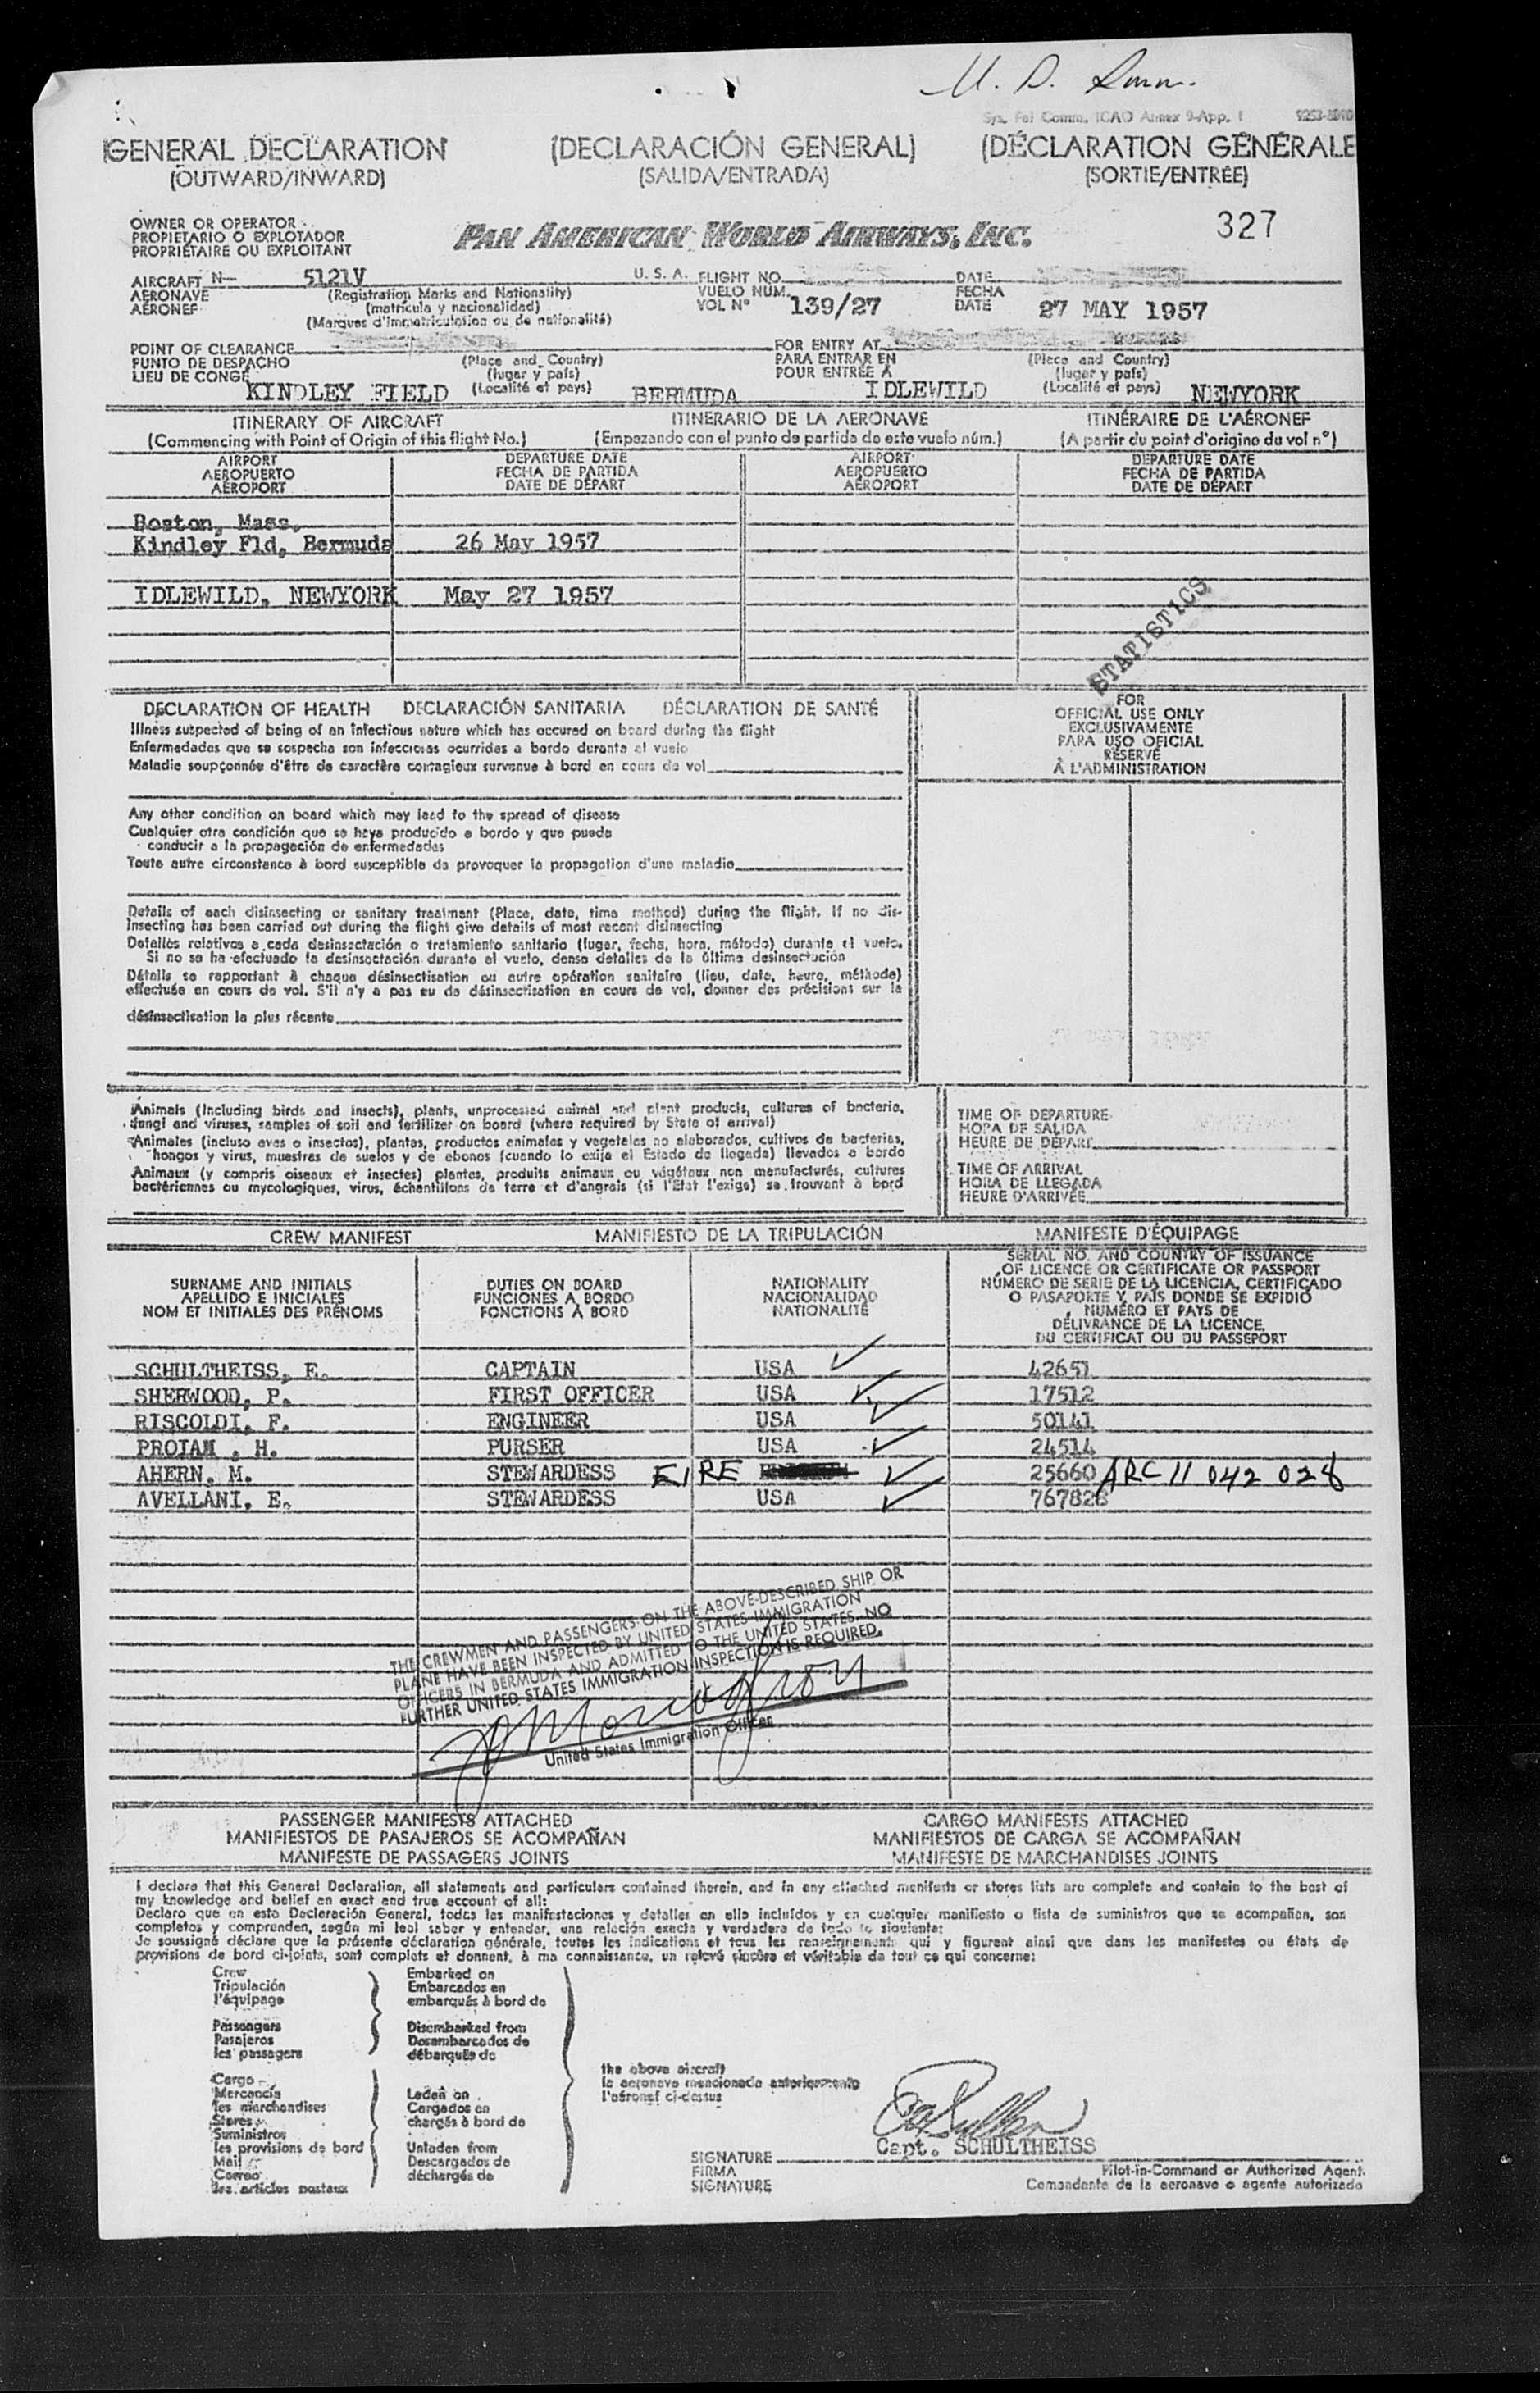 U. S. Imm.
Sys. Fal Comm. ICAO Annex 9-App. 1
GENERAL DECLARATION (DECLARACIÓN GENERAL) (DÉCLARATION GÉNÉRALE
(OUTWARD/INWARD) (SALIDA/ENTRADA) (SORTIE/ENTRÉE)
OWNER OR OPERATOR
PROPIETARIO O EXPLOTADOR
PROPRIÉTAIRE OU EXPLOITANT
PAN AMERICAN WORLD AIRWAYS, INC.
327
AIRCRAFT N- 5121V U. S. A.
AERONAVE (Registration Marks and Nationality)
AÉRONEF (matrícula y nacionalidad)
(Marques d'immatriculation ou de nationalité)
FLIGHT NO.
VUELO NUM.
VOL Nº 139/27
DATE
FECHA
DATE 27 MAY 1957
POINT OF CLEARANCE
PUNTO DE DESPACHO (Place and Country)
LIEU DE CONGÉ (lugar y país)
KINDLEY FIELD (Localité et pays) BERMUDA
FOR ENTRY AT
PARA ENTRAR EN (Place and Country)
POUR ENTRÉE A (lugar y país)
IDLEWILD (Localité et pays) NEWYORK
ITINERARY OF AIRCRAFT ITINERARIO DE LA AERONAVE ITINÉRAIRE DE L'AÉRONEF
(Commencing with Point of Origin of this flight No.) (Empezando con el punto de partida de este vuelo núm.) (A partir du point d'origine du vol nº)
AIRPORT DEPARTURE DATE AIRPORT DEPARTURE DATE
AEROPUERTO FECHA DE PARTIDA AEROPUERTO FECHA DE PARTIDA
AÉROPORT DATE DE DÉPART AÉROPORT DATE DE DÉPART
Boston, Mass.
Kindley Fld, Bermuda 26 May 1957
IDLEWILD, NEWYORK May 27 1957
STATISTICS
DECLARATION OF HEALTH DECLARACIÓN SANITARIA DÉCLARATION DE SANTÉ
Illness suspected of being of an infectious nature which has occured on board during the flight
Enfermedades que se sospecha son infecciosas ocurridas a bordo durante el vuelo
Maladie soupçonnée d'être de caractère contagieux survenue à bord en cours de vol
Any other condition on board which may lead to the spread of disease
Cualquier otra condición que se haya producido a bordo y que pueda
conducir a la propagación de enfermedades
Toute autre circonstance à bord susceptible de provoquer la propagation d'une maladie
Details of each disinsecting or sanitary treatment (Place, date, time method) during the flight. If no dis-
insecting has been carried out during the flight give details of most recent disinsecting
Detalles relativos a cada desinsectación o tratamiento sanitario (lugar, fecha, hora, método) durante el vuelo.
Si no se ha efectuado la desinsectación durante el vuelo, dense detalles de la última desinsectación
Détails se rapportant à chaque désinsectisation ou autre opération sanitaire (lieu, date, heure, méthode)
effectuée en cours de vol. S'il n'y a pas eu de désinsectisation en cours de vol, donner des précisions sur la
désinsectisation la plus récente
FOR
OFFICIAL USE ONLY
EXCLUSIVAMENTE
PARA USO OFICIAL
RÉSERVÉ
À L'ADMINISTRATION
Animals (Including birds and insects), plants, unprocessed animal and plant products, cultures of bacteria,
fungi and viruses, samples of soil and fertilizer on board (where required by State of arrival)
Animales (incluso aves e insectos), plantas, productos animales y vegetales no elaborados, cultivos de bacterias,
hongos y virus, muestras de suelos y de abonos (cuando lo exija el Estado de llegada) llevados a bordo
Animaux (y compris oiseaux et insectes) plantes, produits animaux ou végétaux non manufacturés, cultures
bactériennes ou mycologiques, virus, échantillons de terre et d'engrais (si l'État l'exige) se trouvant à bord
TIME OF DEPARTURE
HORA DE SALIDA
HEURE DE DÉPART
TIME OF ARRIVAL
HORA DE LLEGADA
HEURE D'ARRIVÉE
CREW MANIFEST MANIFIESTO DE LA TRIPULACIÓN MANIFESTE D'ÉQUIPAGE
SURNAME AND INITIALS
APELLIDO E INICIALES
NOM ET INITIALES DES PRÉNOMS
DUTIES ON BOARD
FUNCIONES A BORDO
FONCTIONS À BORD
NATIONALITY
NACIONALIDAD
NATIONALITÉ
SERIAL NO. AND COUNTRY OF ISSUANCE
OF LICENCE OR CERTIFICATE OR PASSPORT
NÚMERO DE SERIE DE LA LICENCIA, CERTIFICADO
O PASAPORTE Y PAÍS DONDE SE EXPIDIÓ
NUMÉRO ET PAYS DE
DÉLIVRANCE DE LA LICENCE,
DU CERTIFICAT OU DU PASSEPORT
SCHULTHEISS, E. CAPTAIN USA 42651
SHERWOOD, P. FIRST OFFICER USA 17512
RISCOLDI, F. ENGINEER USA 50141
PROIAM , H. PURSER USA 24514
AHERN, M. STEWARDESS EIRE 25660 ARC 11 042 028
AVELLANI, E. STEWARDESS USA 767828
THE CREWMEN AND PASSENGERS ON THE ABOVE-DESCRIBED SHIP OR
PLANE HAVE BEEN INSPECTED BY UNITED STATES IMMIGRATION
OFFICERS IN BERMUDA AND ADMITTED TO THE UNITED STATES. NO
FURTHER UNITED STATES IMMIGRATION INSPECTION IS REQUIRED.
United States Immigration Officer
PASSENGER MANIFESTS ATTACHED CARGO MANIFESTS ATTACHED
MANIFIESTOS DE PASAJEROS SE ACOMPAÑAN MANIFIESTOS DE CARGA SE ACOMPAÑAN
MANIFESTE DE PASSAGERS JOINTS MANIFESTE DE MARCHANDISES JOINTS
I declare that this General Declaration, all statements and particulars contained therein, and in any attached manifests or stores lists are complete and contain to the best of
my knowledge and belief an exact and true account of all:
Declaro que en esta Declaración General, todas las manifestaciones y detalles en ella incluídos y en cualquier manifiesto o lista de suministros que se acompañan, son
completos y comprenden, según mi leal saber y entender, una relación exacta y verdadera de todo lo siguiente:
Je soussigné déclare que la présente déclaration générale, toutes les indications et tous les renseignements qui y figurent ainsi que dans les manifestes ou états de
provisions de bord ci-joints, sont complets et donnent, à ma connaissance, un relevé sincère et véritable de tout ce qui concerne:
Crew
Tripulación
l'équipage
Passengers
Pasajeros
les passagers
Cargo
Mercancía
les marchandises
Stores
Suministros
les provisions de bord
Mail
Correo
les articles postaux
Embarked on
Embarcados en
embarqués à bord de
Disembarked from
Desembarcados de
débarqués de
Laden on
Cargados en
chargés à bord de
Unladen from
Descargados de
déchargés de
the above aircraft
la aeronave mencionada anteriormente
l'aéronef ci-dessus
Capt. SCHULTHEISS
SIGNATURE
FIRMA
SIGNATURE
Pilot-in-Command or Authorized Agent.
Comandante de la aeronave o agente autorizado